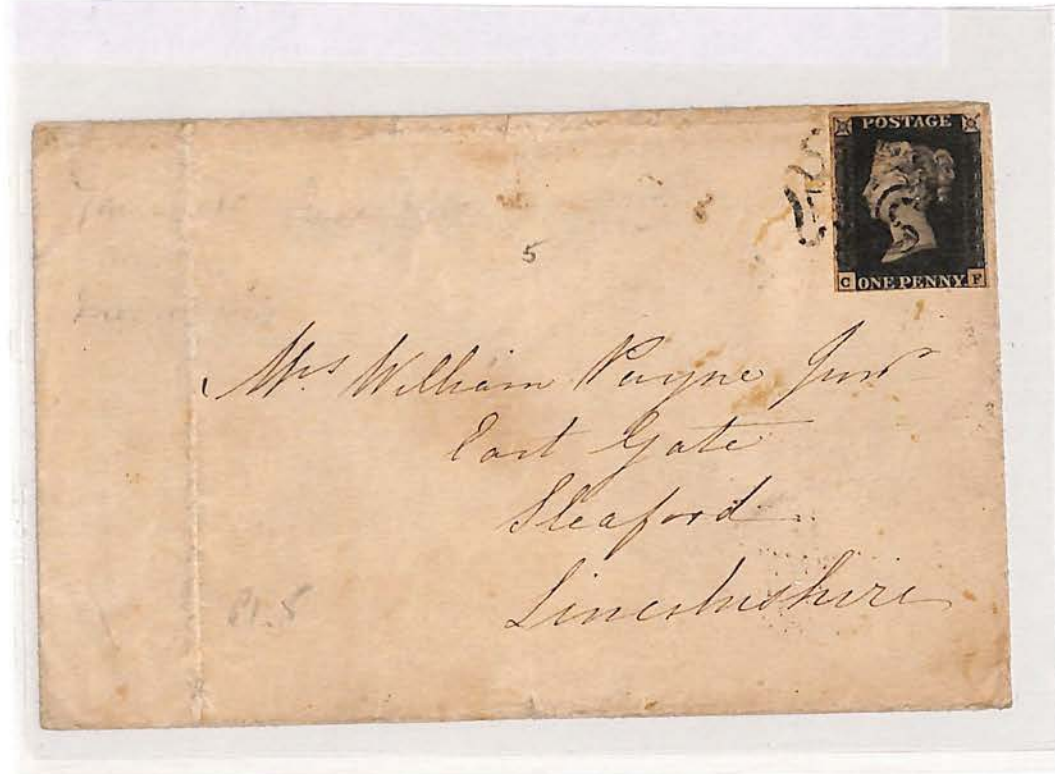 POSTAGE
C ONE PENNY F
5
Mrs William Payne Junr
East Gate
Sleaford
Lincolnshire
Pl. 5